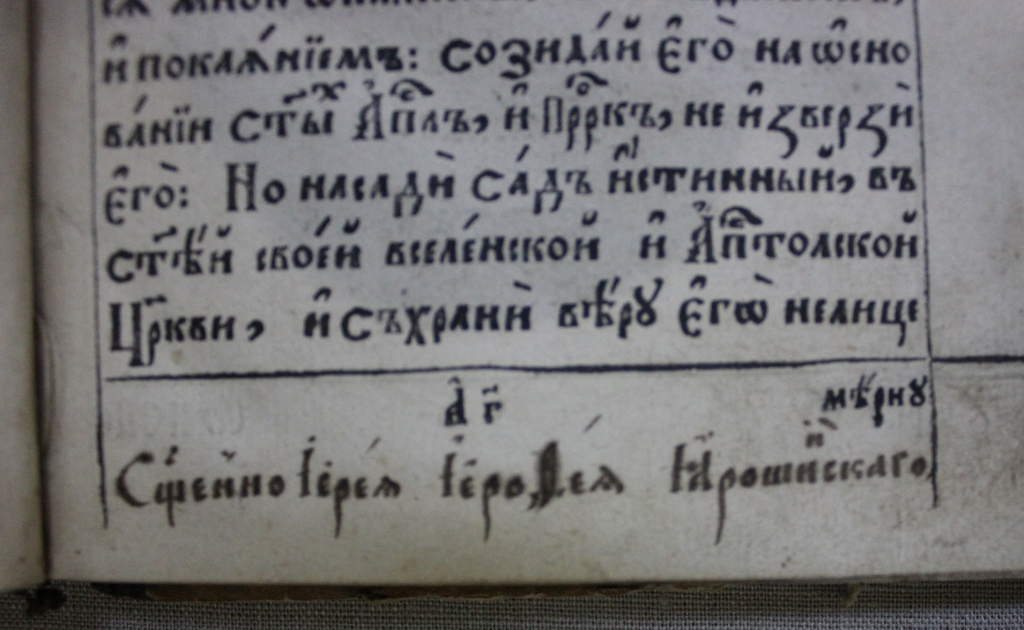 и҆ покаѧ́нїемъ: созида́й є҆го̀ на ѡ҆сно
ва́нїи ст҃ы́хъ А҆пⷭ҇лъ, и҆ Прⷪ҇ркъ, не и҆зверзѝ
є҆го̀: Но насадѝ са́дъ и҆́стинный, въ
ст҃ѣ́й свое́й вселе́нской и҆ А҆пⷭ҇толской
Цр҃кви, и҆ съхранѝ вѣ́рꙋ є҆гѡ̀ нелице
а҃ г҃ мѣ́рнꙋ
Сщ҃е́нно І҆ере́ѧ І҆еро,ѳе́ѧ Ꙗ҆роши́нскаго,